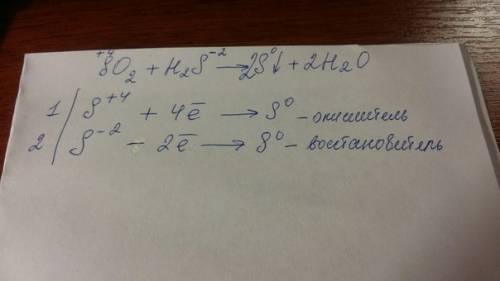 +4 SO₂ + H₂S⁻² → 2S⁰↓ + 2H₂O
1 | S⁺⁴ + 4ē → S⁰ – окислитель
2 | S⁻² – 2ē → S⁰ – восстановитель